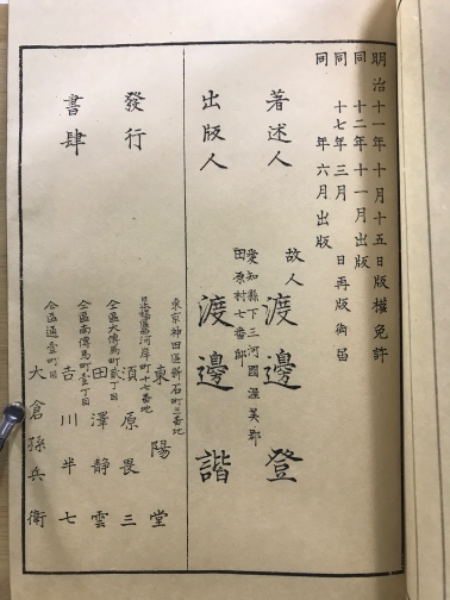 明治十一年十月十五日版權免許
同十二年十一月出版
同十七年三月 日再版御届
同 年六月出版
著述人 故人 渡邊登
愛知縣下三河國渥美郡
田原村七番邸
出版人 渡邊諧
發行
書肆
東京神田區新石町三番地
東陽堂
日本橋區河岸町十七番地
須原畏三
仝區大傳馬町貳丁目
田澤静雲
仝區南傳馬町壹丁目
吉川半七
仝區通壹町目
大倉孫兵衛